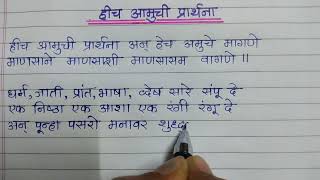 हीच आमुची प्रार्थना
हीच आमुची प्रार्थना अन् हेच अमुचे मागणे
माणसाने माणसाशी माणसासम वागणे ॥
धर्म, जाती, प्रांत, भाषा, द्वेष सारे संपू दे
एक निष्ठा एक आशा एक रंगी रंगू दे
अन् पून्हा पसरो मनावर शुद्ध